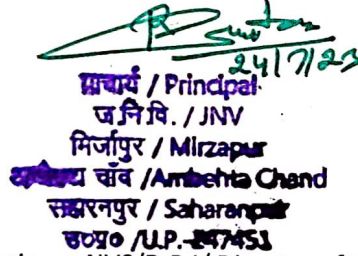 24/7/23
प्राचार्य / Principal
ज.नि.वि. / JNV
मिर्जापुर / Mirzapur
चाँव / Ambehta Chand
सहारनपुर / Saharanpur
उ०प्र० / U.P.-247453